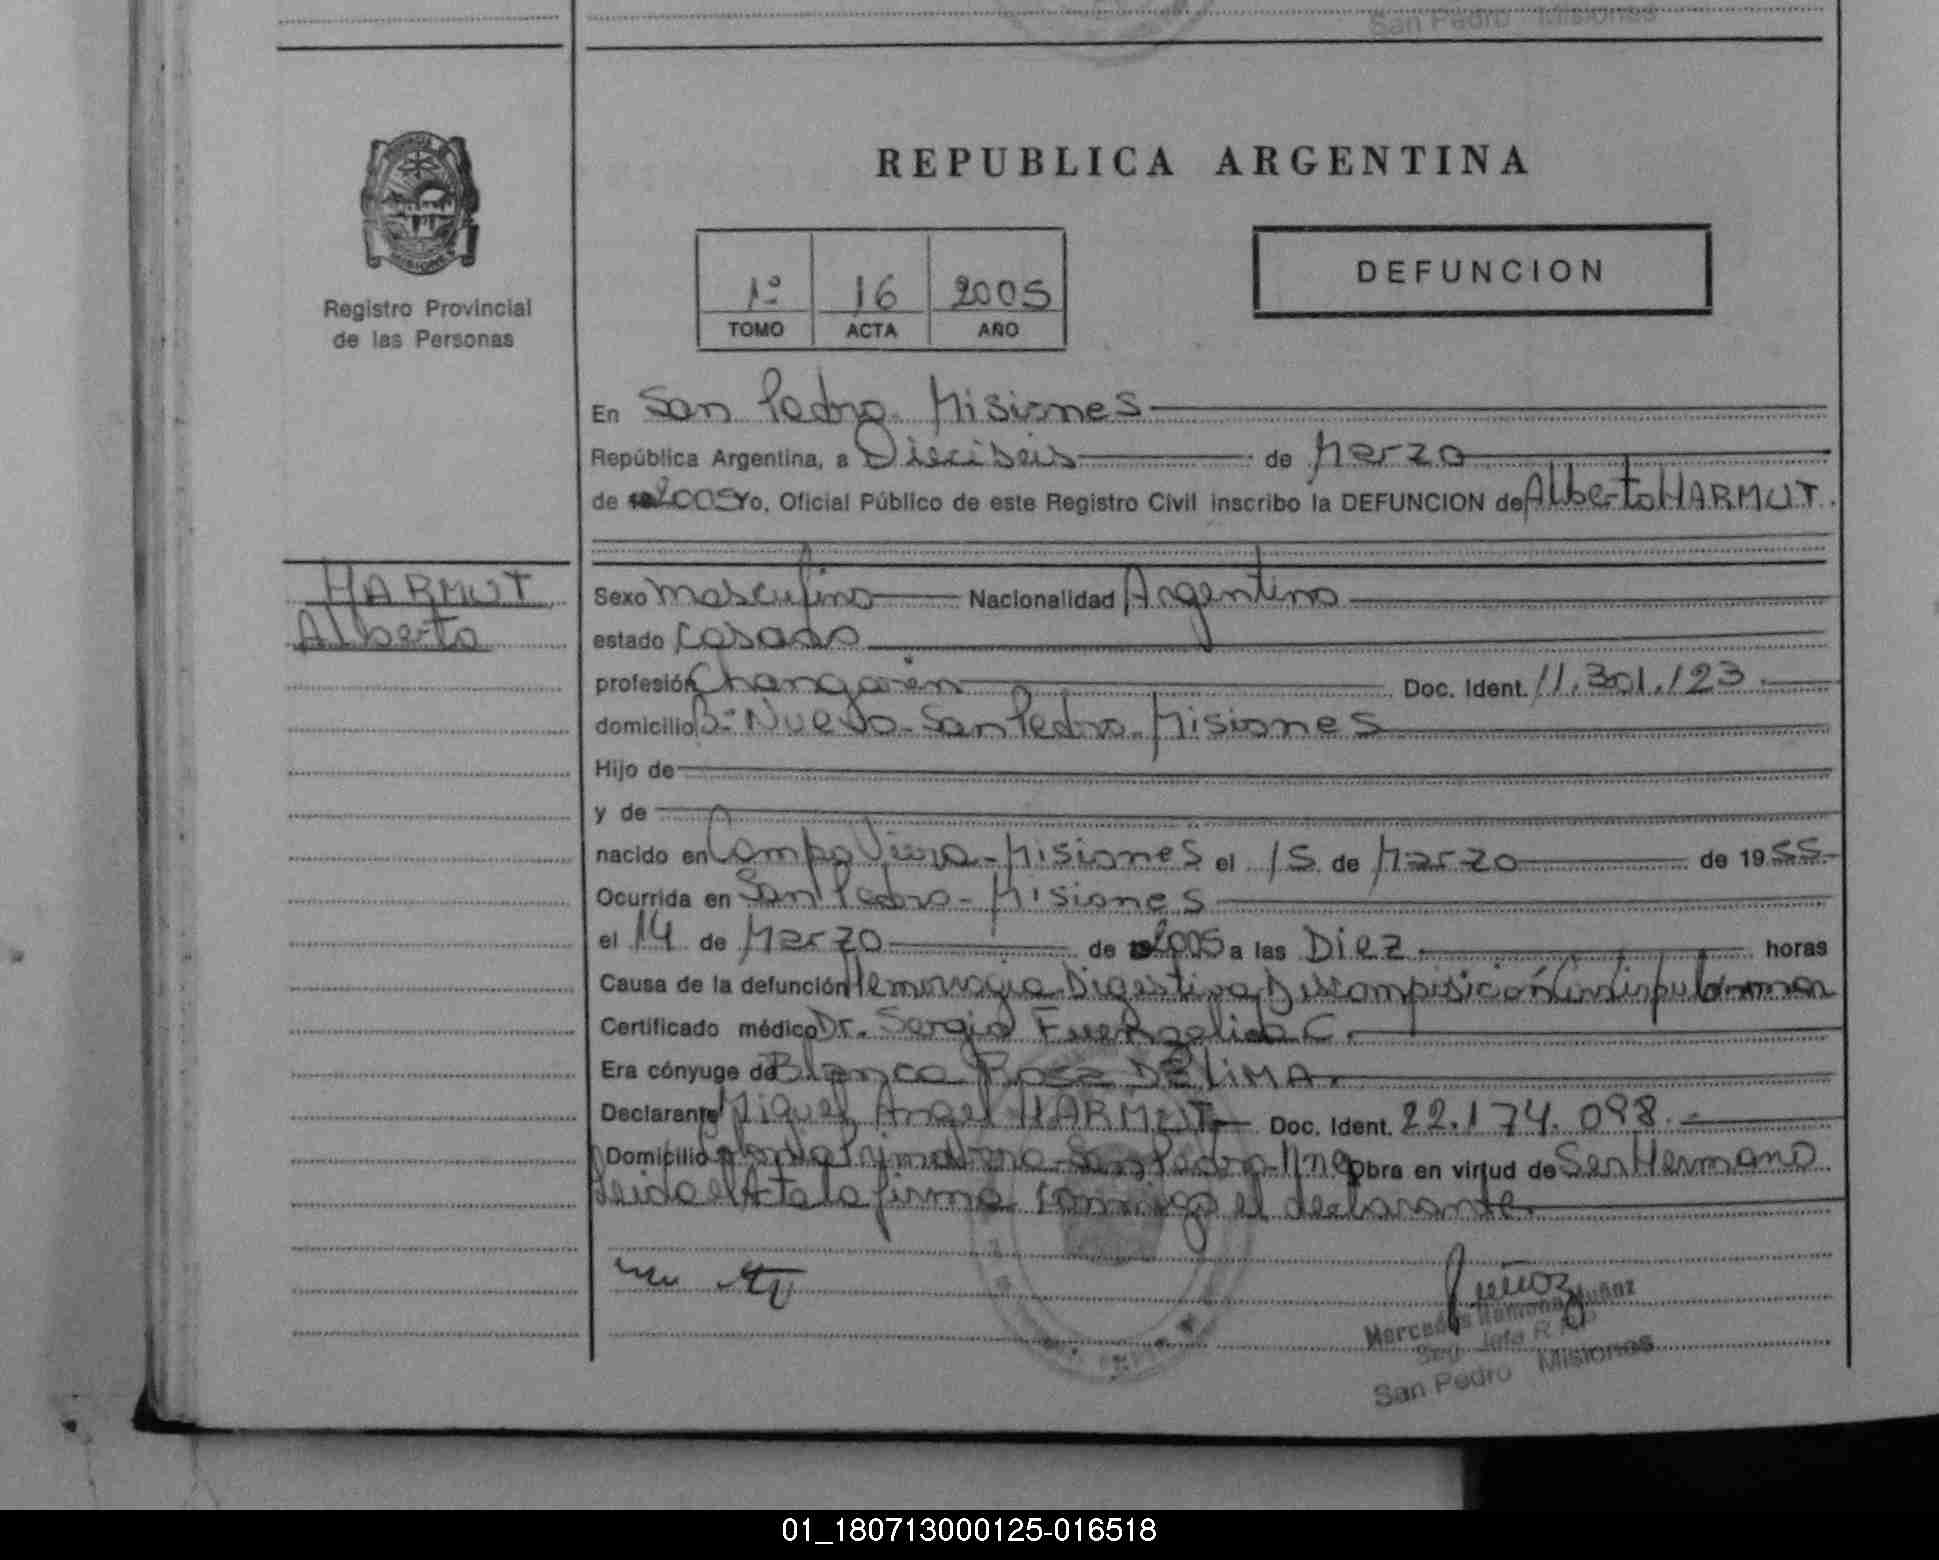 San Pedro Misiones
REPUBLICA ARGENTINA
MISIONES
Registro Provincial
de las Personas
1º 16 2005
TOMO ACTA AÑO
DEFUNCION
En San Pedro - Misiones
República Argentina, a Dieciseis de Marzo
de 2005 Yo, Oficial Público de este Registro Civil inscribo la DEFUNCION de Alberto HARMUT.
HARMUT
Alberto
Sexo masculino Nacionalidad Argentino
estado casado
profesión Changarín Doc. Ident. 11.301.123.
domicilio Bº Nuevo - San Pedro - Misiones
Hijo de
y de
nacido en Campo Viera - Misiones el 15 de Marzo de 1955-
Ocurrida en San Pedro - Misiones
el 14 de Marzo de 2005 a las Diez horas
Causa de la defunción Hemorragia Digestiva,
Certificado médico Dr. Sergio Fuenzalida C.
Era cónyuge de Blanca Rosa DE LIMA.
Declarante Miguel Angel HARMUT Doc. Ident. 22.174.098.-
Domicilio Colonia Primavera - San Pedro - Mnes Obra en virtud de Ser Hermano
Leida el Acta la firma conmigo el declarante.
Muñoz
Mercedes Ramona Muñoz
San Pedro Misiones
01_180713000125-016518